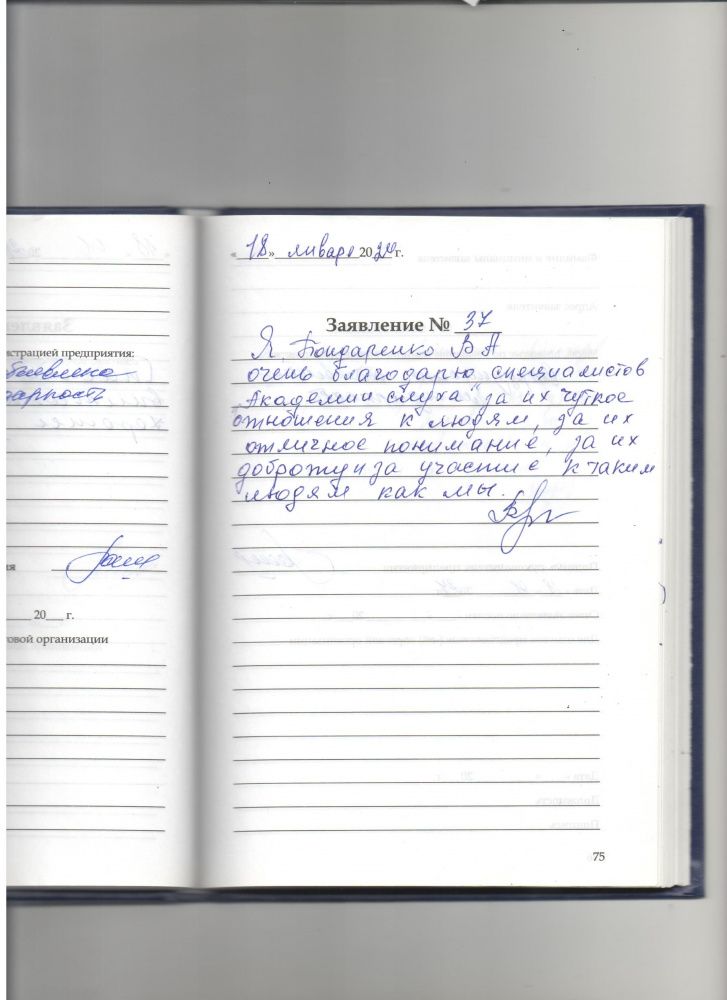 истрацией предприятия:
20 г.
овой организации
«18» января 2020 г.
Заявление № 37
Я, Бондаренко В А
очень благодарю специалистов
"Академии слуха" за их чуткое
отношения к людям, за их
отличное понимание, за их
за участие к таким
людям как мы.
75